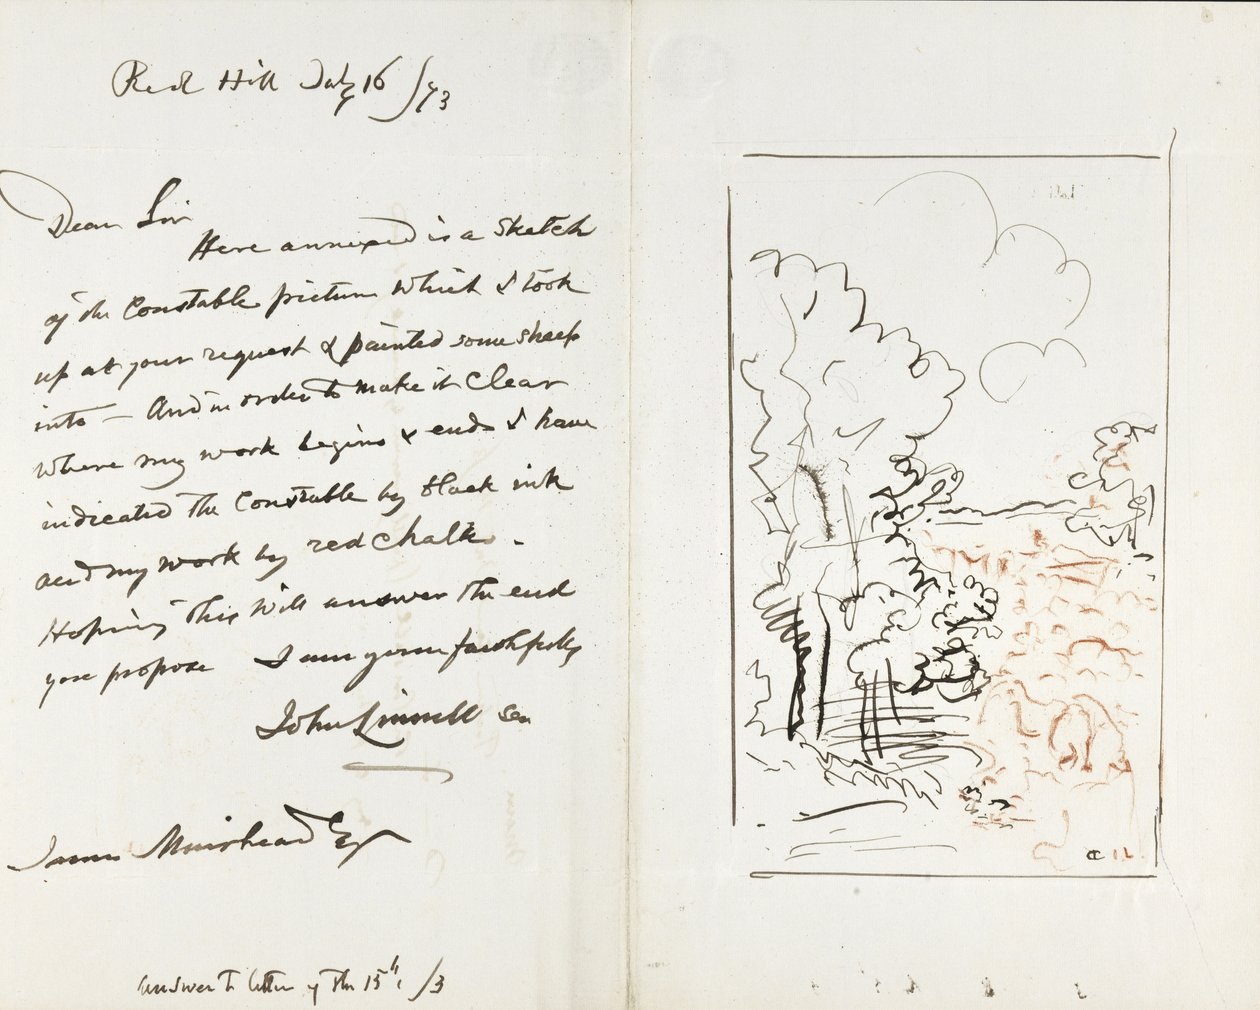 Red Hill July 16 /73
Dear Sir
Here annexed is a sketch
of the Constable picture which I took
up at your request & painted some sheep
into – And in order to make it clear
where my work begins & ends I have
indicated the Constable by black ink
and my work by red chalk. –
Hoping this will answer the end
you propose I am yours faithfully
John Linnell Sen
James Muirhead Esq
answer to letter of the 15th /3